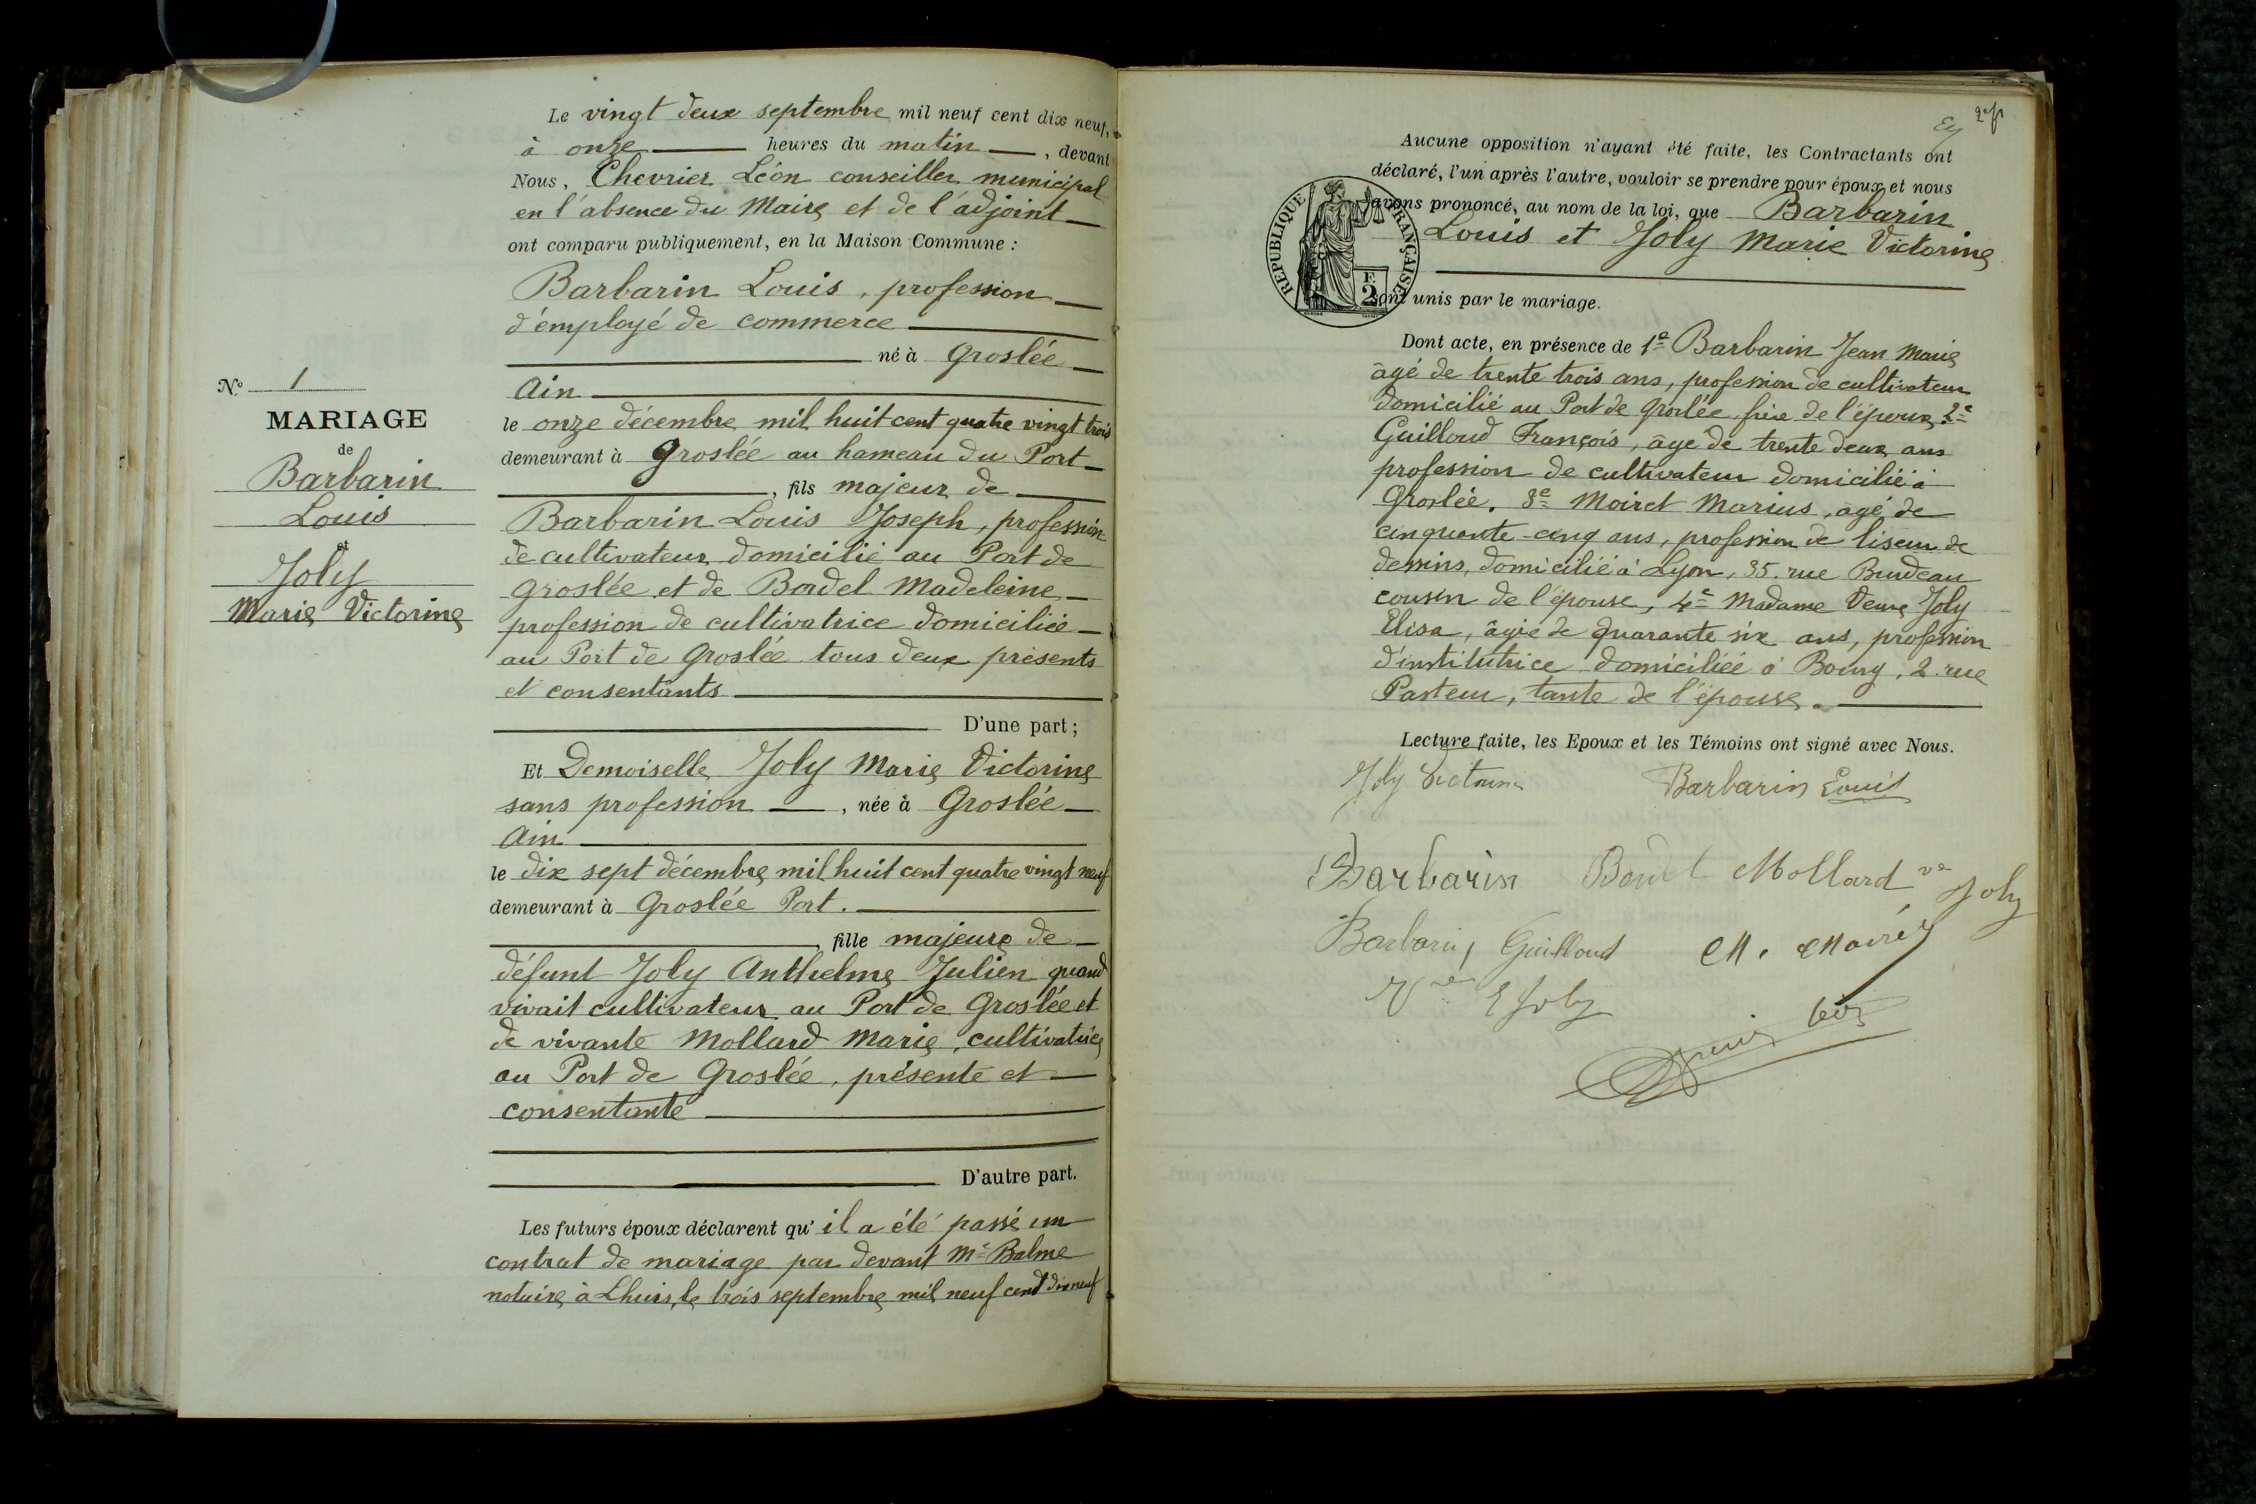 Le vingt deux septembre mil neuf cent dix neuf,
à onze heures du matin, devant
Nous, Chevrier Léon conseiller municipal
en l'absence du Maire et de l'adjoint
ont comparu publiquement, en la Maison Commune :
Barbarin Louis, profession
d'employé de commerce
né à Groslée
Ain
le onze décembre mil huit cent quatre vingt trois
demeurant à Groslée au hameau du Port
, fils majeur de
Barbarin Louis Joseph, profession
de cultivateur domicilié au Port de
Groslée et de Bordel Madeleine
profession de cultivatrice domiciliée
au Port de Groslée tous deux présents
et consentants
D'une part ;
Et Demoiselle Joly Marie Victorine
sans profession, née à Groslée
Ain
le dix sept décembre mil huit cent quatre vingt neuf
demeurant à Groslée Port.
, fille majeure de
défunt Joly Anthelme Julien quand
vivait cultivateur au Port de Groslée et
de vivante Mollard Marie, cultivatrice
au Port de Groslée, présente et
consentante
D'autre part.
Les futurs époux déclarent qu' il a été passé un
contrat de mariage par devant Me Balme
notaire à Lhuis, le trois septembre mil neuf cent dix neuf
No 1
MARIAGE
de
Barbarin
Louis
et
Joly
Marie Victorine
Aucune opposition n'ayant été faite, les Contractants ont
déclaré, l'un après l'autre, vouloir se prendre pour époux et nous
avons prononcé, au nom de la loi, que Barbarin
Louis et Joly Marie Victorine
sont unis par le mariage.
RÉPUBLIQUE FRANÇAISE
F.
2
Dont acte, en présence de 1e Barbarin Jean Marie
âgé de trente trois ans, profession de cultivateur
domicilié au Port de Groslée frère de l'époux, 2e
Guilloud François, âge de trente deux ans
profession de cultivateur domicilié à
Groslée. 3e Moiret Marius, agé de
cinquante-cinq ans, profession de liseur de
dessins, domicilié à Lyon, 35. rue Burdeau
cousin de l'épouse, 4e Madame Veuve Joly
Elisa, âgée de quarante six ans, profession
d'institutrice domiciliée à Bourg, 2. rue
Pasteur, tante de l'épouse.
Lecture faite, les Epoux et les Témoins ont signé avec Nous.
Joly Victorine Barbarin Louis
Barbarin Bordel Mollard ve Joly
Barbarin Guilloud M. Moiret
Vve E Joly
Léon